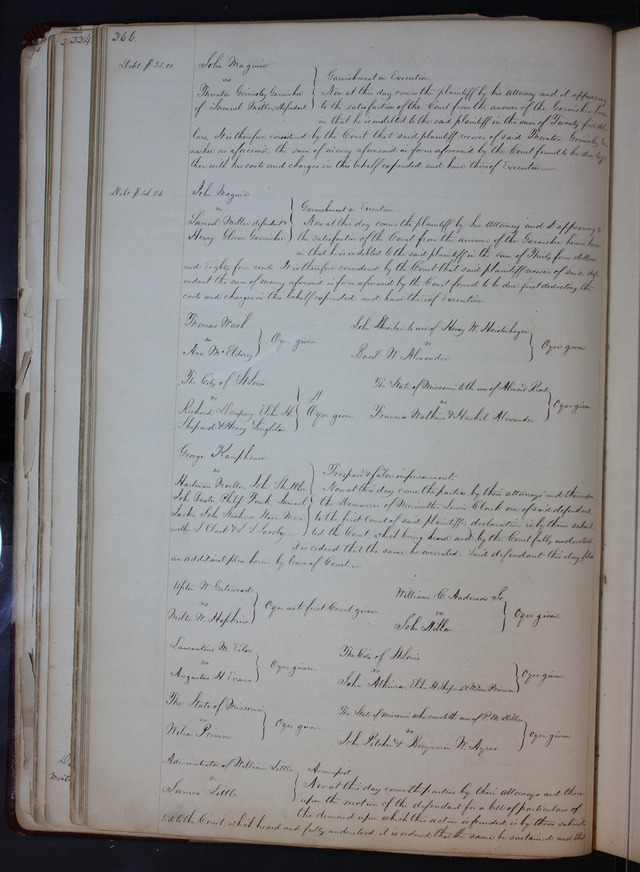 334
366.
Debt $25.00
John Maguire
vs
Thornton Grimsley Garnishee
of Samuel Miller, Defendant
Garnishment on Execution
Now at this day comes the plaintiff by his Attorney and it appearing
to the satisfaction of the Court from the answer of the Garnishee
in that he is indebted to the said plaintiff in the sum of Twenty five dol
lars, It is therefore considered by the Court that said plaintiff recover of said Thornton Grimsley
as aforesaid the sum of money aforesaid in form aforesaid by the Court found to be due toge
ther with his costs and charges in this behalf expended, and have thereof Execution.
John Maguire
vs
Samuel Miller defendant &
Henry Glover Garnishee
Garnishment on Execution
Now at this day comes the plaintiff by his Attorney and it appearing to
the satisfaction of the Court from the answer of the Garnishee
in that he is indebted to the said plaintiff in the sum of dollars
and Eighty four cents It is therefore considered by the Court that said plaintiff recover of said def
endant the sum of money aforesaid in form aforesaid by the Court found to be due first deducting the
costs and charges in this behalf expended, and have thereof Execution
Thomas Wash
vs
Ann McElderry
Oyer given
John to use of Henry W.
vs
Basil W. Alexander
Oyer given
The City of St Louis
vs
Richard Dempsey, Elih H
Shepard & Henry Singleton
Oyer given
The State of Missouri to the use of Root
vs
Francis Watkins & Haskel Alexander
Oyer given
George Kamphouse
vs
Hartman Moeller, John
John Philip Samuel
John
Clark & L S
Trespass & false imprisonment.
Now at this day come the parties by their attorneys and thereupon
the Demurrer of Meriwether Lewis Clark one of said defendants
to the first Count of said plaintiffs declaration is by them submit
ted the Court which being heard and by the Court fully understood
it is ordered that the same be overruled. Said defendant this day files
an additional plea herein by leave of Court.
Upton W. Gatewood
vs
Milton W. Hopkins
Oyer as to first Count given
William C. Anderson Sr.
vs
John
Oyer given.
Laurentius M. Eiler
vs
Augustus H Evans
Oyer given
The City of St Louis
vs
John Atkinson Elih H Shepard & Wilson Primm
Oyer given
The State of Missouri
vs
Wilson Primm
Oyer given
The State of Missouri who sues to the use of
vs
John & Benjamin W. Ayres
Oyer given
Administrator of William Little
vs
James Little
Assumpsit
Now at this day come the parties by their Attorneys and there
upon the motion of the defendant for a bill of particulars of
the demand upon which this action is founded, is by them submit
ted to the Court, which heard and fully understood it is ordered that the same be sustained and that